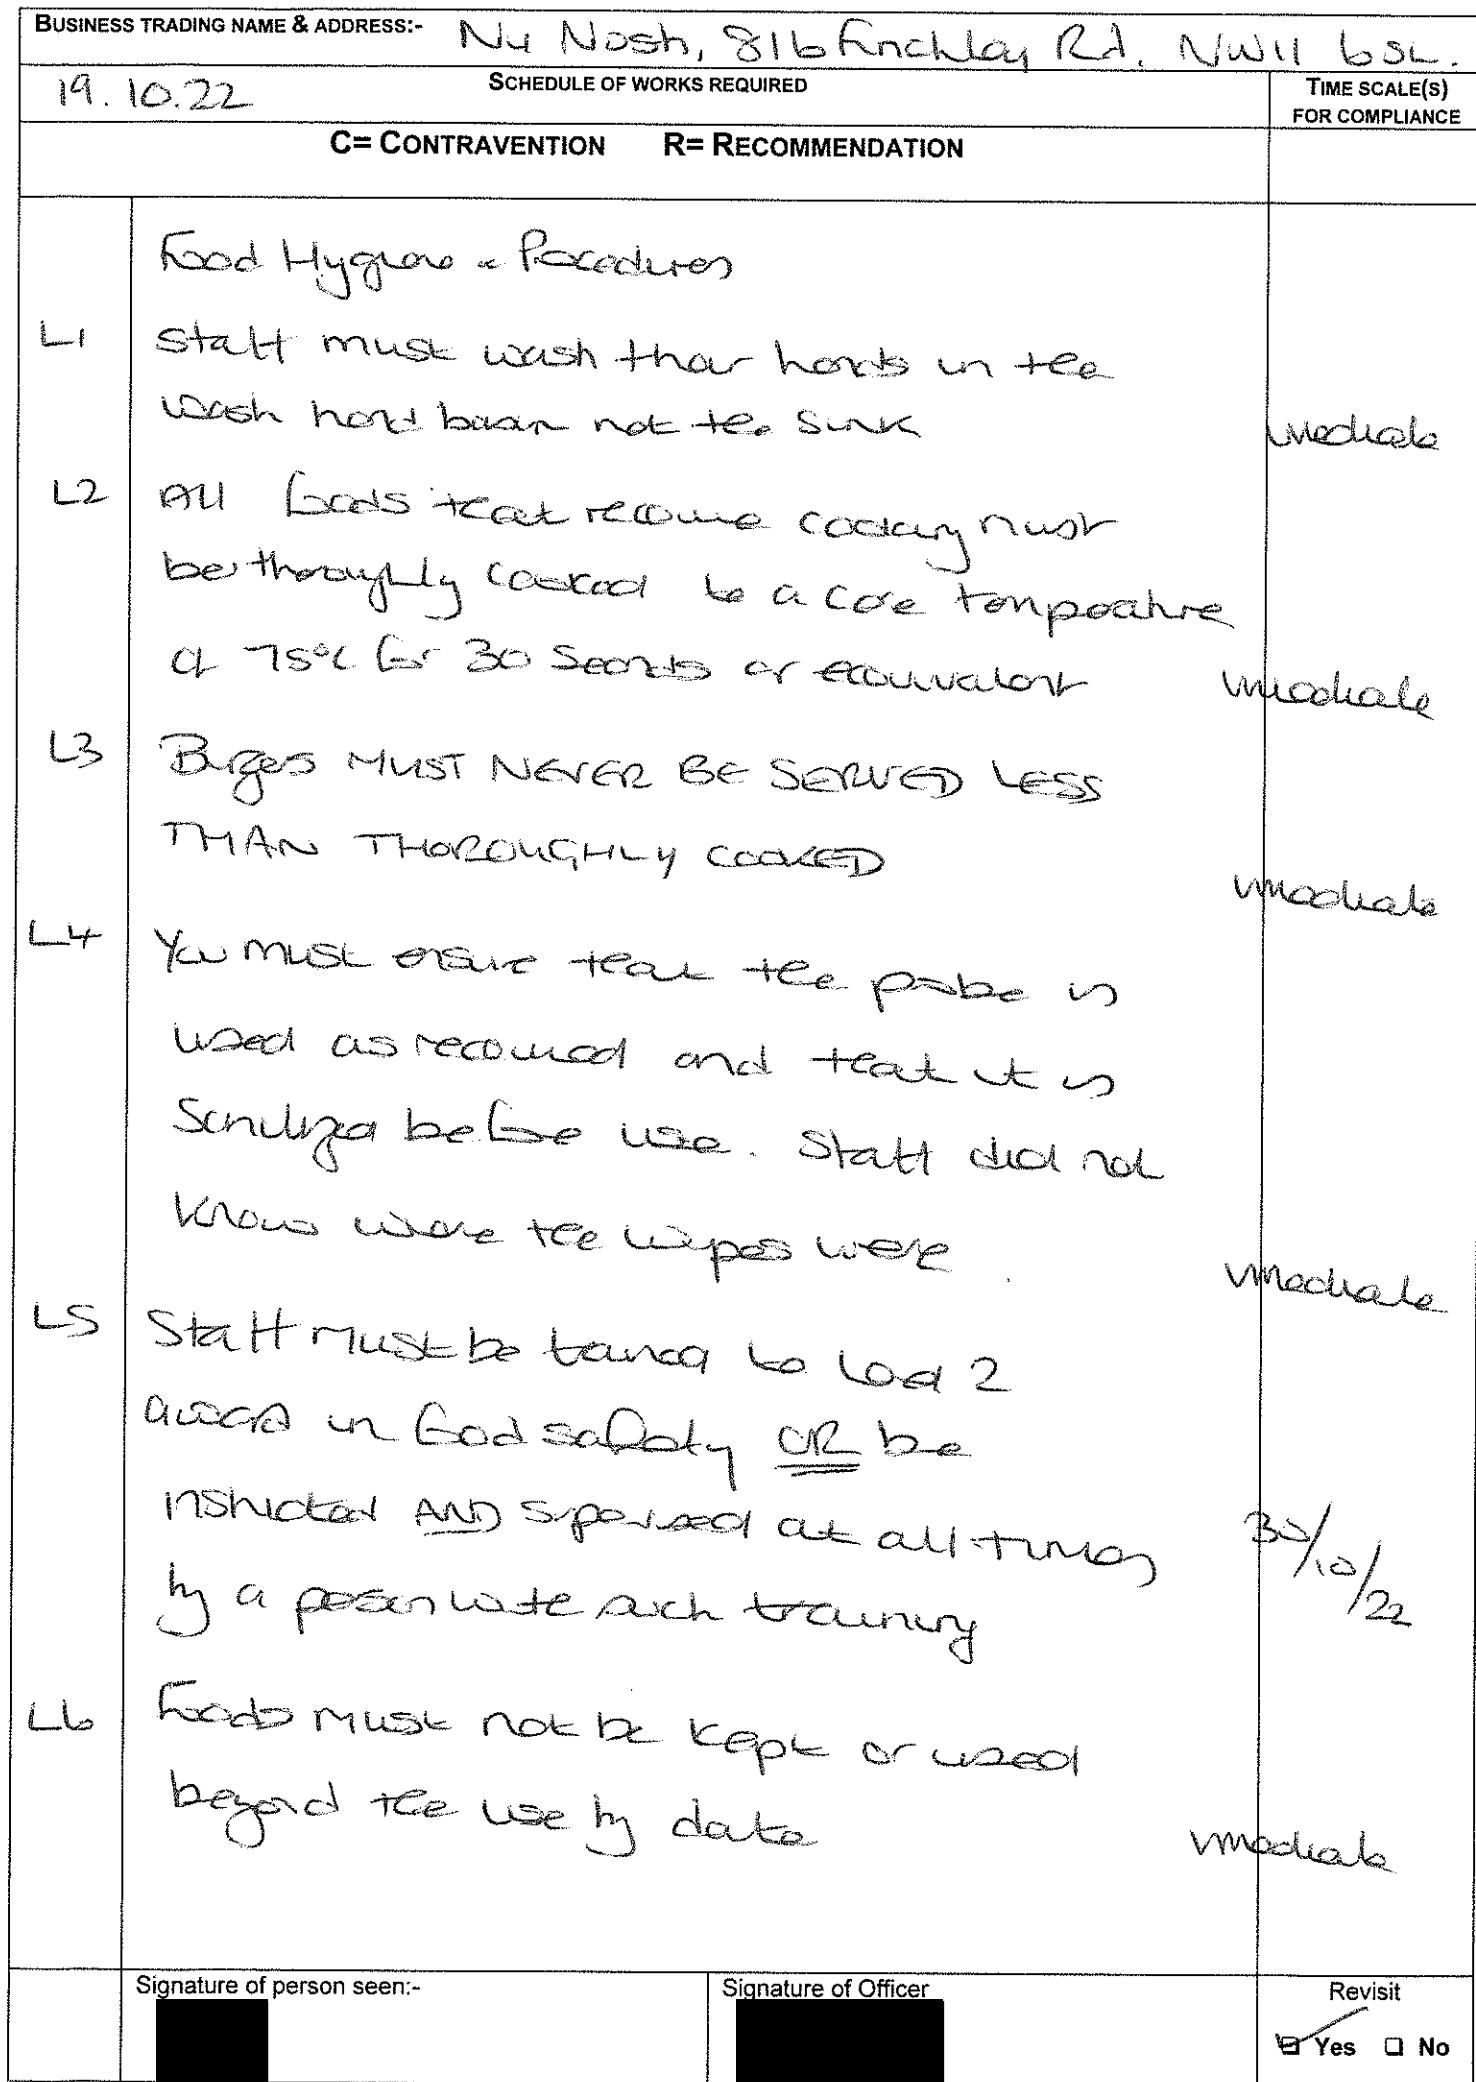 BUSINESS TRADING NAME & ADDRESS:- Nu Nosh, 816 Finchley Rd. NW11 6SL.
19.10.22 SCHEDULE OF WORKS REQUIRED TIME SCALE(S)
FOR COMPLIANCE
C= CONTRAVENTION R= RECOMMENDATION
Food Hygiene & Procedures
L1 Staff must wash their hands in the
wash hand basin not the sink immediate
L2 All foods that require cooking must
be thoroughly cooked to a core temperature
of 75°C for 30 Seconds or equivalent immediate
L3 Burgers MUST NEVER BE SERVED LESS
THAN THOROUGHLY COOKED
immediate
L4 You must ensure that the probe is
used as required and that it is
Sanitized before use. Staff did not
know where the wipes were. immediate
L5 Staff must be trained to level 2
award in food safety OR be
instructed AND supervised at all times 30/10/22
by a person with such training
L6 Foods must not be kept or used
beyond the use by date immediate
Signature of person seen:- Signature of Officer Revisit
Yes No